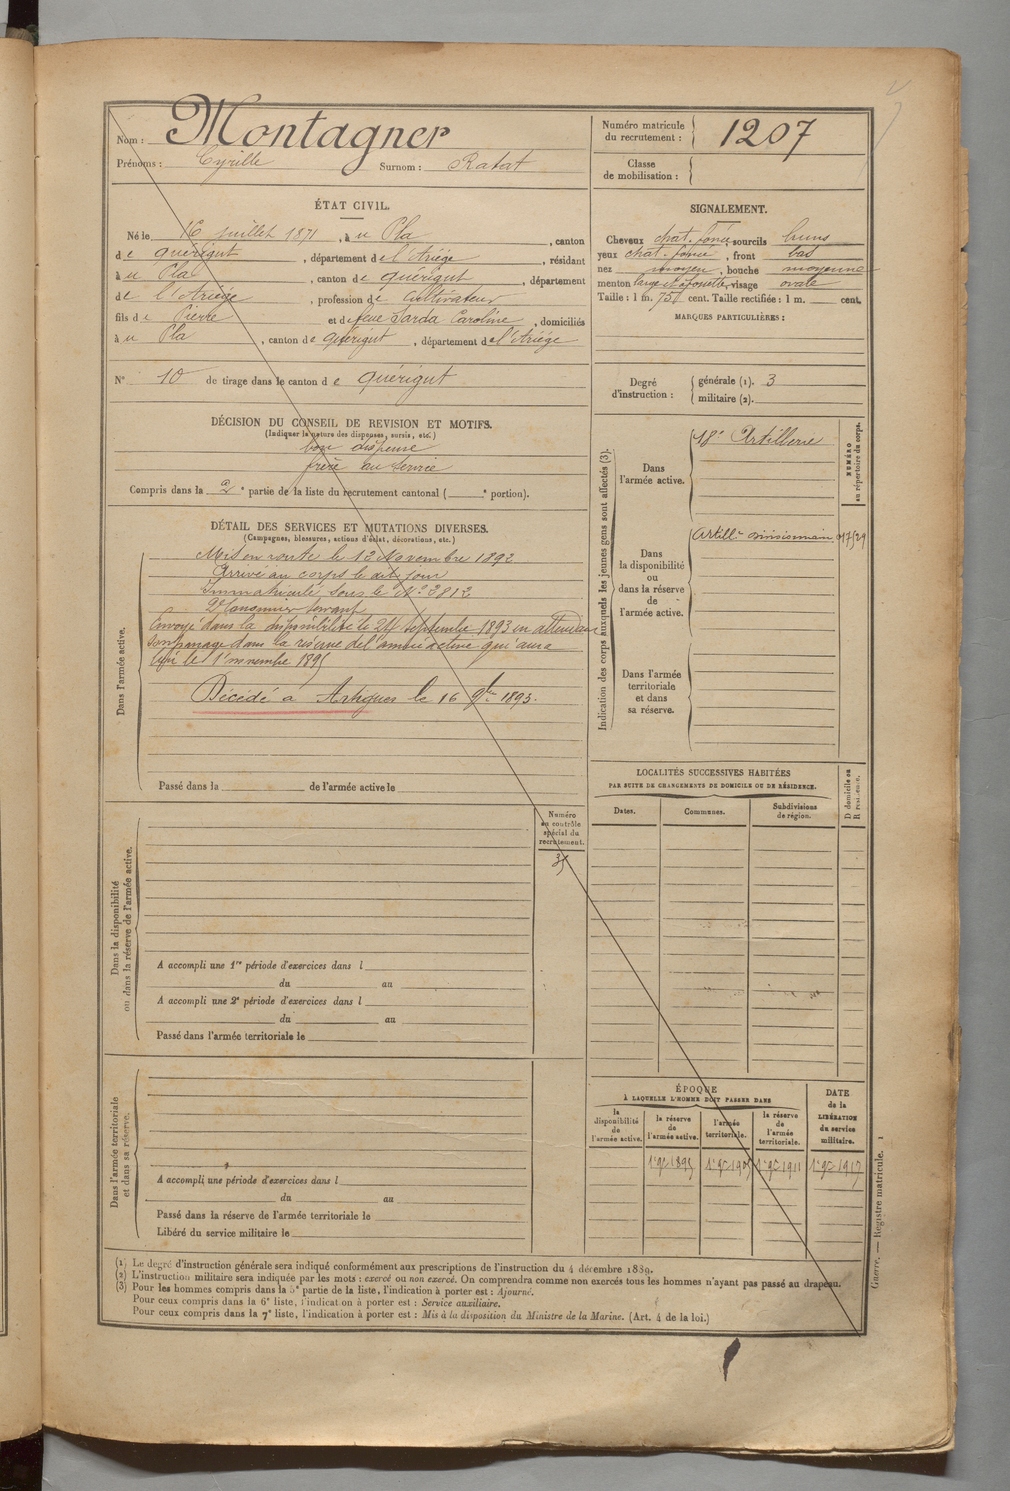 Nom : Montagner
Prénoms : Cyrille Surnom : Ratat
Numéro matricule
du recrutement : 1207
Classe
de mobilisation :
ÉTAT CIVIL.
Né le 16 juillet 1871, à u Pla, canton
de quérigut, département de l'Ariège, résidant
à u Pla, canton de quérigut, département
de l'Ariège, profession de Cultivateur
fils de Pierre et de feue Sarda Caroline, domiciliés
à u Pla, canton de quérigut, département de l'Ariège
N° 10 de tirage dans le canton de quérigut
SIGNALEMENT.
Cheveux chat. foncé, sourcils bruns
yeux chat. foncé, front bas
nez moyen, bouche moyenne
menton large et à fossette, visage ovale
Taille : 1 m. 757 cent. Taille rectifiée : 1 m. cent.
MARQUES PARTICULIÈRES :
Degré
d'instruction :
générale (1). 3
militaire (2).
DÉCISION DU CONSEIL DE REVISION ET MOTIFS.
(Indiquer la nature des dispenses, sursis, etc.)
bon dispensé
frère au service
Compris dans la 2e partie de la liste du recrutement cantonal ( e portion).
DÉTAIL DES SERVICES ET MUTATIONS DIVERSES.
(Campagnes, blessures, actions d'éclat, décorations, etc.)
Dans l'armée active.
Mis en route le 12 Novembre 1892
Arrivé au corps le dit jour
Immatriculé sous le N° 3812
2e Canonnier servant
Envoyé dans la disponibilité le 24 septembre 1893 en attendant
son passage dans la réserve de l'armée active qui aura
lieu le 1er novembre 1895
Décédé à Artigues le 16 9bre 1893.
Passé dans la de l'armée active le
Indication des corps auxquels les jeunes gens sont affectés (3).
NUMÉRO
au répertoire du corps.
Dans
l'armée active.
18e Artillerie
Dans
la disponibilité
ou
dans la réserve
de
l'armée active.
Artillie divisionnaire
Dans l'armée
territoriale
et dans
sa réserve.
LOCALITÉS SUCCESSIVES HABITÉES
PAR SUITE DE CHANGEMENTS DE DOMICILE OU DE RÉSIDENCE.
D domicile ou
R résidence.
Dates. Communes. Subdivisions
de région.
Numéro
au contrôle
spécial du
recrutement.
35
Dans la disponibilité
ou dans la réserve de l'armée active.
A accompli une 1re période d'exercices dans l
du au
A accompli une 2e période d'exercices dans l
du au
Passé dans l'armée territoriale le
Dans l'armée territoriale
et dans sa réserve.
A accompli une période d'exercices dans l
du au
Passé dans la réserve de l'armée territoriale le
Libéré du service militaire le
ÉPOQUE
À LAQUELLE L'HOMME DOIT PASSER DANS
la
disponibilité
de
l'armée active.
la réserve
de
l'armée active.
l'armée
territoriale.
la réserve
de
l'armée
territoriale.
DATE
de la
LIBÉRATION
du service
militaire.
1er 9bre 1895 1er 9bre 1905 1er 9bre 1911 1er 9bre 1917
(1) Le degré d'instruction générale sera indiqué conformément aux prescriptions de l'instruction du 4 décembre 1889.
(2) L'instruction militaire sera indiquée par les mots : exercé ou non exercé. On comprendra comme non exercés tous les hommes n'ayant pas passé au drapeau.
(3) Pour les hommes compris dans la 5e partie de la liste, l'indication à porter est : Ajourné.
Pour ceux compris dans la 6e liste, l'indication à porter est : Service auxiliaire.
Pour ceux compris dans la 7e liste, l'indication à porter est : Mis à la disposition du Ministre de la Marine. (Art. 4 de la loi.)
Guerre. — Registre matricule. 1